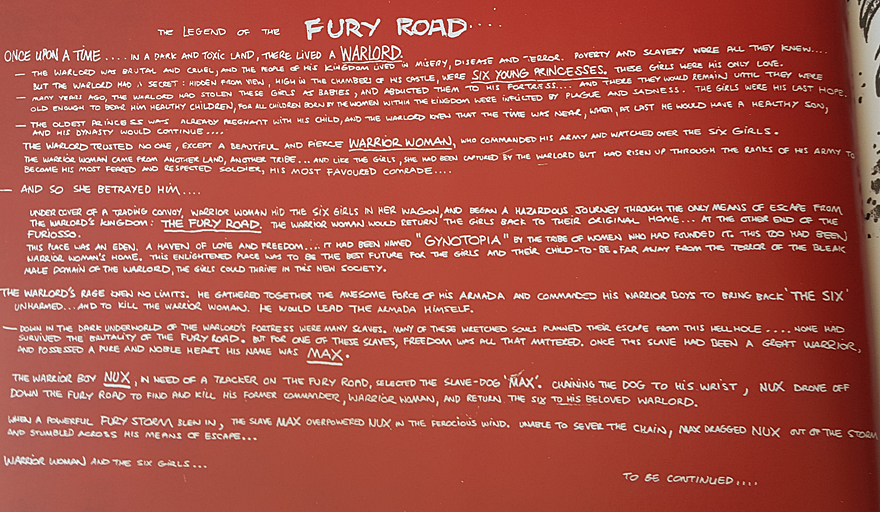 THE LEGEND OF THE FURY ROAD....
ONCE UPON A TIME .... IN A DARK AND TOXIC LAND, THERE LIVED A WARLORD.
— THE WARLORD WAS BRUTAL AND CRUEL, AND THE PEOPLE OF HIS KINGDOM LIVED IN MISERY, DISEASE AND TERROR. POVERTY AND SLAVERY WERE ALL THEY KNEW....
BUT THE WARLORD HAD A SECRET: HIDDEN FROM VIEW, HIGH IN THE CHAMBERS OF HIS CASTLE, WERE SIX YOUNG PRINCESSES. THESE GIRLS WERE HIS ONLY LOVE.
— MANY YEARS AGO, THE WARLORD HAD STOLEN THESE GIRLS AS BABIES, AND ABDUCTED THEM TO HIS FORTRESS.... AND THERE THEY WOULD REMAIN UNTIL THEY WERE
OLD ENOUGH TO BEAR HIM HEALTHY CHILDREN, FOR ALL CHILDREN BORN BY THE WOMEN WITHIN THE KINGDOM WERE INFLICTED BY PLAGUE AND SADNESS. THE GIRLS WERE HIS LAST HOPE.
— THE OLDEST PRINCESS WAS ALREADY PREGNANT WITH HIS CHILD, AND THE WARLORD KNEW THAT THE TIME WAS NEAR, WHEN, AT LAST HE WOULD HAVE A HEALTHY SON,
AND HIS DYNASTY WOULD CONTINUE....
THE WARLORD TRUSTED NO ONE, EXCEPT A BEAUTIFUL AND FIERCE WARRIOR WOMAN, WHO COMMANDED HIS ARMY AND WATCHED OVER THE SIX GIRLS.
THE WARRIOR WOMAN CAME FROM ANOTHER LAND, ANOTHER TRIBE... AND LIKE THE GIRLS, SHE HAD BEEN CAPTURED BY THE WARLORD BUT HAD RISEN UP THROUGH THE RANKS OF HIS ARMY TO
BECOME HIS MOST FEARED AND RESPECTED SOLDIER, HIS MOST FAVOURED COMRADE....
— AND SO SHE BETRAYED HIM....
UNDER COVER OF A TRADING CONVOY, WARRIOR WOMAN HID THE SIX GIRLS IN HER WAGON, AND BEGAN A HAZARDOUS JOURNEY THROUGH THE ONLY MEANS OF ESCAPE FROM
THE WARLORD'S KINGDOM: THE FURY ROAD. THE WARRIOR WOMAN WOULD RETURN THE GIRLS BACK TO THEIR ORIGINAL HOME... AT THE OTHER END OF THE
FURIOSSO.
THIS PLACE WAS AN EDEN. A HAVEN OF LOVE AND FREEDOM.... IT HAD BEEN NAMED "GYNOTOPIA" BY THE TRIBE OF WOMEN WHO HAD FOUNDED IT. THIS TOO HAD BEEN
WARRIOR WOMAN'S HOME. THIS ENLIGHTENED PLACE WAS TO BE THE BEST FUTURE FOR THE GIRLS AND THEIR CHILD-TO-BE. FAR AWAY FROM THE TERROR OF THE BLEAK
MALE DOMAIN OF THE WARLORD, THE GIRLS COULD THRIVE IN THIS NEW SOCIETY.
THE WARLORD'S RAGE KNEW NO LIMITS. HE GATHERED TOGETHER THE AWESOME FORCE OF HIS ARMADA AND COMMANDED HIS WARRIOR BOYS TO BRING BACK 'THE SIX'
UNHARMED...AND TO KILL THE WARRIOR WOMAN. HE WOULD LEAD THE ARMADA HIMSELF.
— DOWN IN THE DARK UNDERWORLD OF THE WARLORD'S FORTRESS WERE MANY SLAVES. MANY OF THESE WRETCHED SOULS PLANNED THEIR ESCAPE FROM THIS HELLHOLE.... NONE HAD
SURVIVED THE BRUTALITY OF THE FURY ROAD. BUT FOR ONE OF THESE SLAVES, FREEDOM WAS ALL THAT MATTERED. ONCE THIS SLAVE HAD BEEN A GREAT WARRIOR,
AND POSSESSED A PURE AND NOBLE HEART. HIS NAME WAS MAX.
THE WARRIOR BOY NUX, IN NEED OF A TRACKER ON THE FURY ROAD, SELECTED THE SLAVE-DOG 'MAX'. CHAINING THE DOG TO HIS WRIST, NUX DROVE OFF
DOWN THE FURY ROAD TO FIND AND KILL HIS FORMER COMMANDER, WARRIOR WOMAN, AND RETURN THE SIX TO HIS BELOVED WARLORD.
WHEN A POWERFUL FURY STORM BLEW IN, THE SLAVE MAX OVERPOWERED NUX IN THE FEROCIOUS WIND. UNABLE TO SEVER THE CHAIN, MAX DRAGGED NUX OUT OF THE STORM
AND STUMBLED ACROSS HIS MEANS OF ESCAPE...
WARRIOR WOMAN AND THE SIX GIRLS...
TO BE CONTINUED....